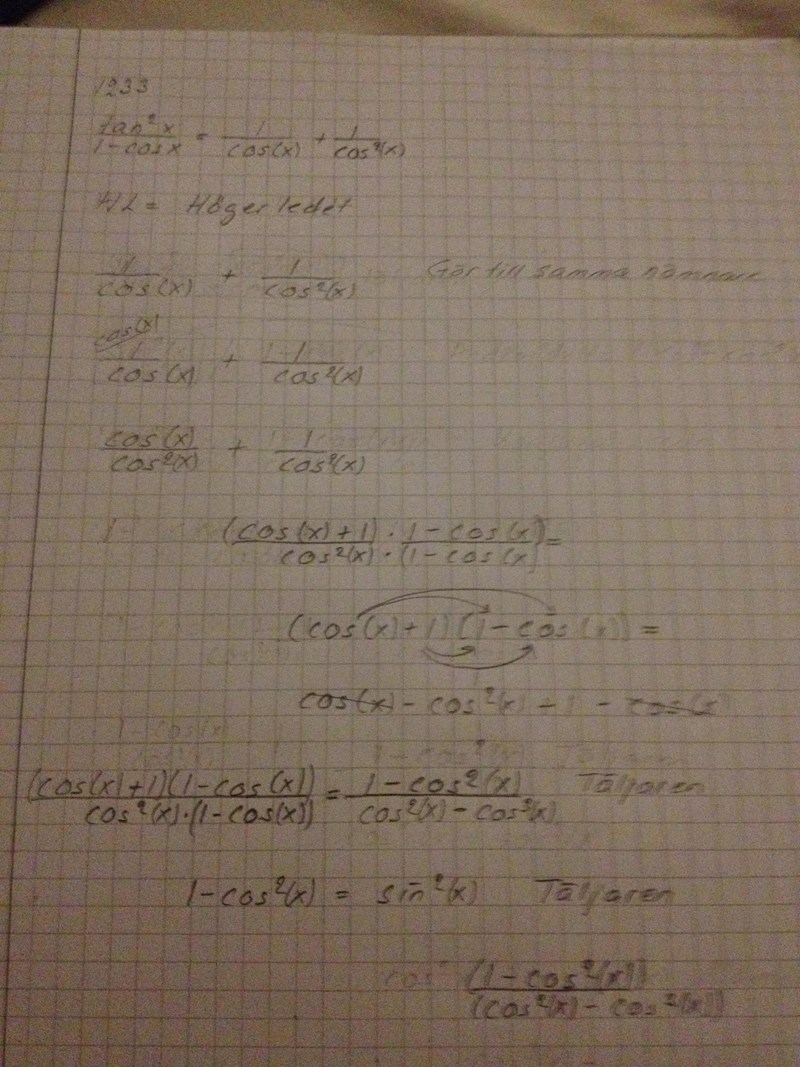 1233
tan²x / 1-cosx = 1 / cos(x) + 1 / cos²(x)
HL = Höger ledet
1 / cos(x) + 1 / cos²(x) Gör till samma nämnare
cos(x) 1 / cos(x) + 1 / cos²(x)
cos(x) / cos²(x) + 1 / cos²(x)
(cos(x)+1) · 1-cos(x)) / cos²(x) · (1-cos(x) =
(cos(x)+1) (1-cos(x)) =
cos(x) - cos²(x) + 1 - cos(x)
(cos(x)+1)(1-cos(x)) / cos²(x)·(1-cos(x)) = 1-cos²(x) / cos²(x) - cos³(x) Täljaren
1-cos²(x) = sin²(x) Täljaren
(1-cos²(x)) / (cos²(x) - cos³(x))